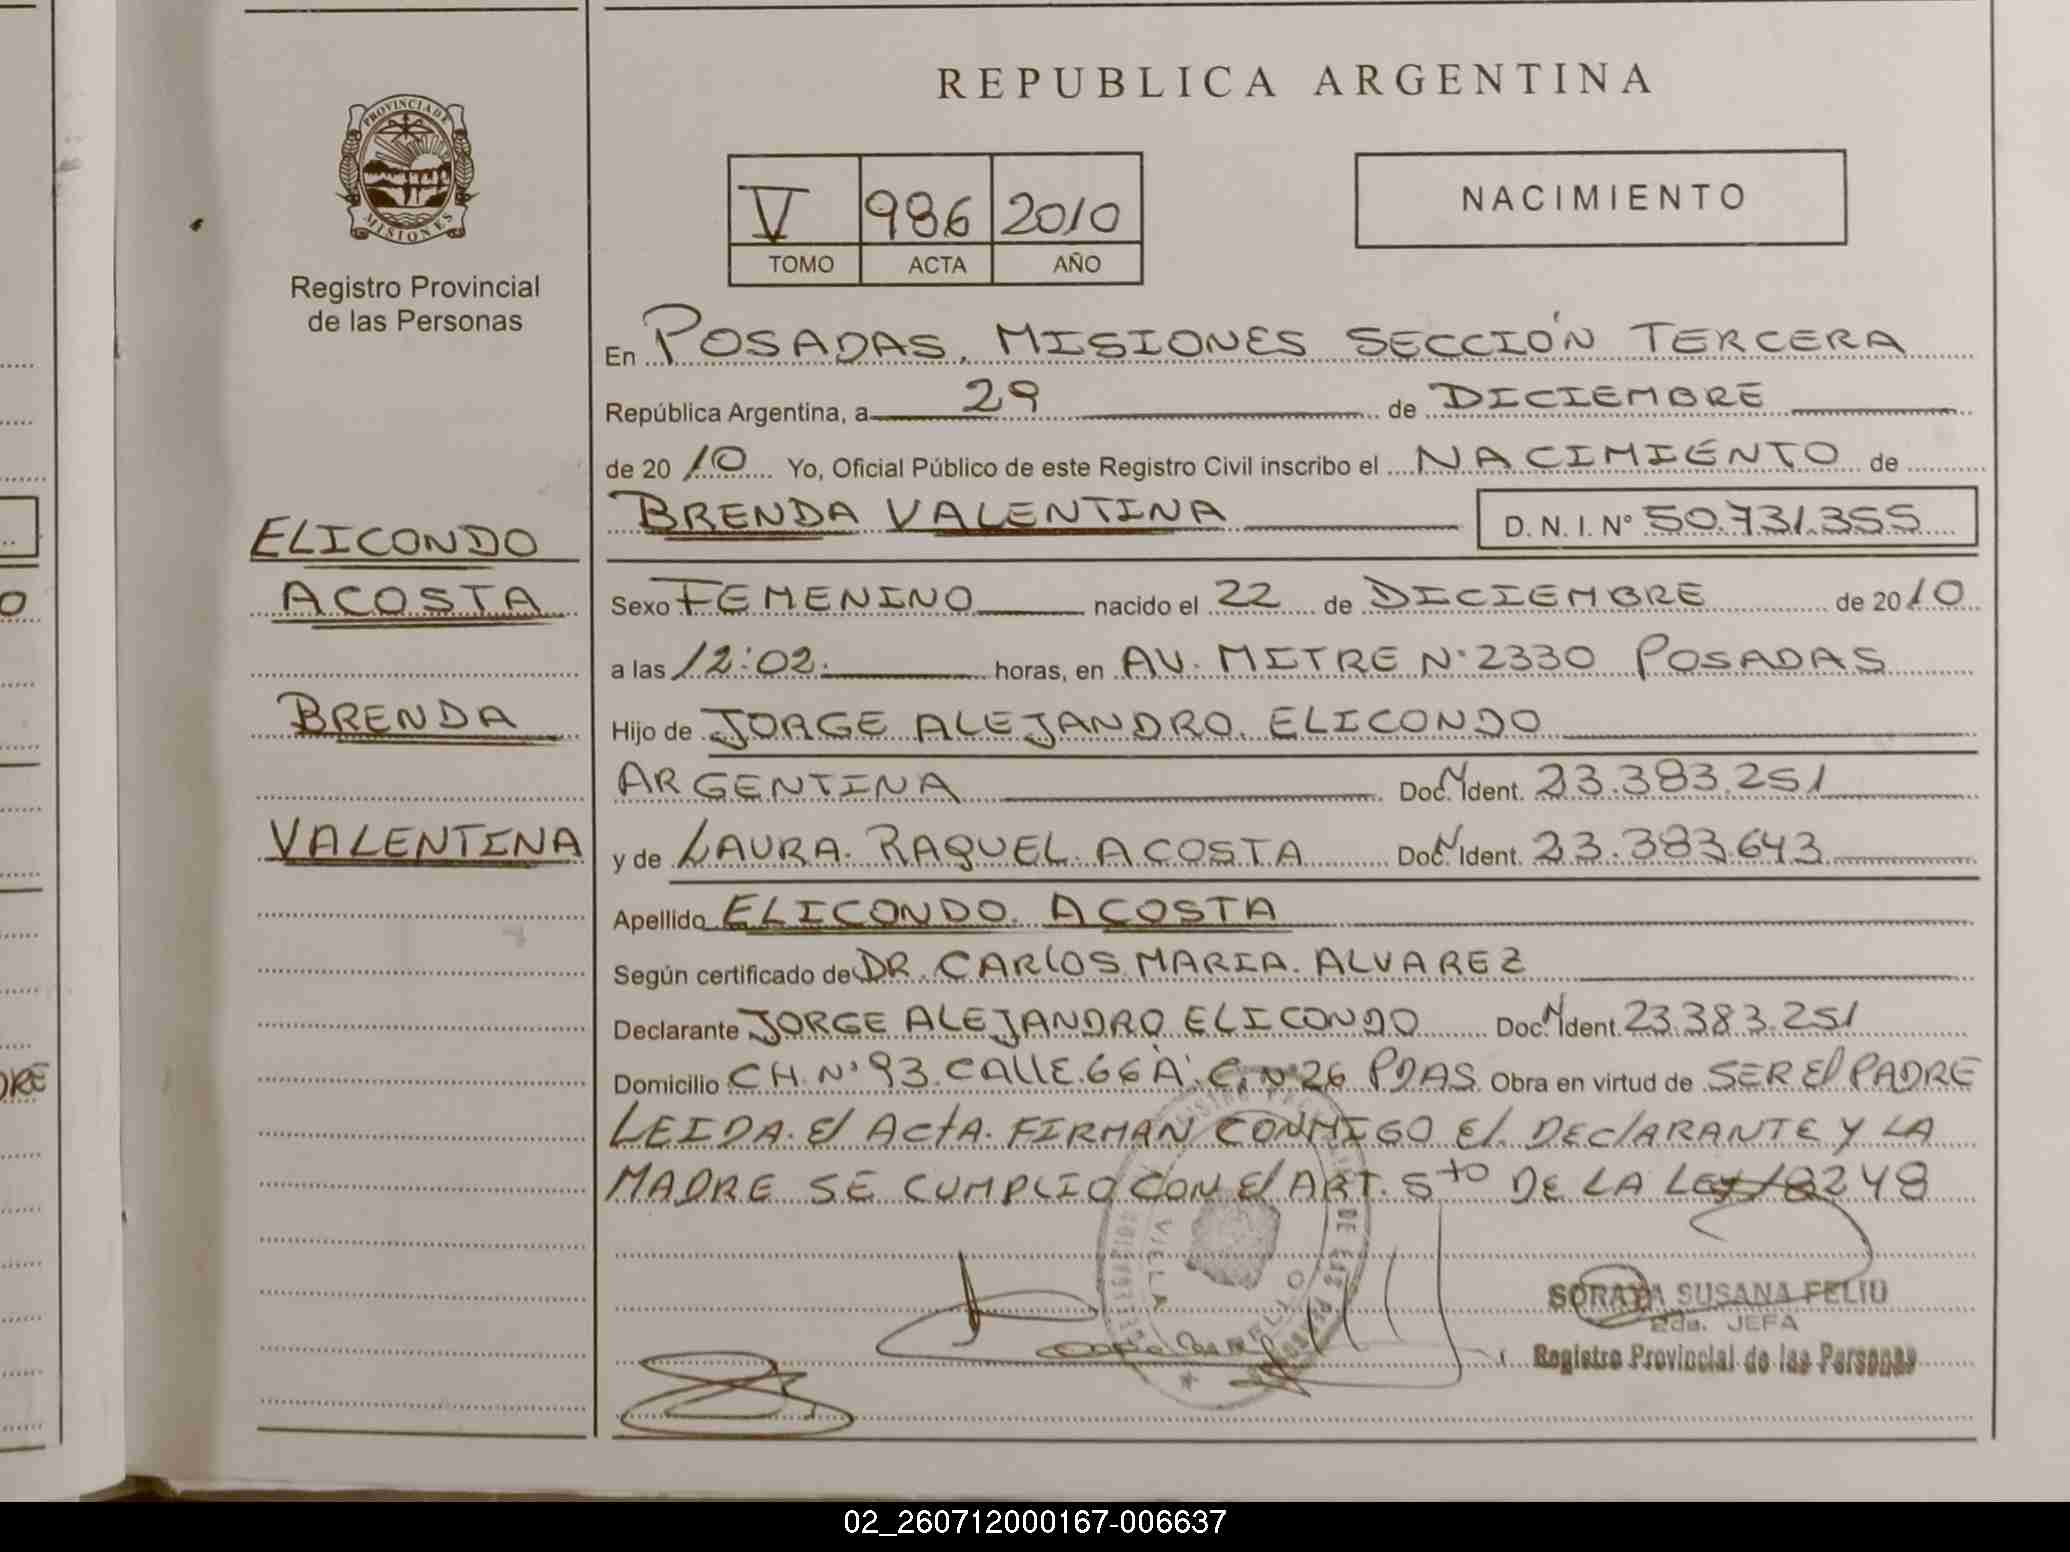 REPUBLICA ARGENTINA
PROVINCIA DE
MISIONES
Registro Provincial
de las Personas
V 986 2010
TOMO ACTA AÑO
NACIMIENTO
En POSADAS, MISIONES SECCIÓN TERCERA
República Argentina, a 29 de DICIEMBRE
de 2010 Yo, Oficial Público de este Registro Civil inscribo el NACIMIENTO de
BRENDA VALENTINA D. N. I. N° 50.731.355
ELICONDO
ACOSTA
BRENDA
VALENTINA
Sexo FEMENINO nacido el 22 de DICIEMBRE de 2010
a las 12:02 horas, en AV. MITRE N° 2330 POSADAS
Hijo de JORGE ALEJANDRO ELICONDO
ARGENTINA Doc. Ident. 23.383.251
y de LAURA RAQUEL ACOSTA Doc. Ident. 23.383.643
Apellido ELICONDO ACOSTA
Según certificado de DR. CARLOS MARIA ALVAREZ
Declarante JORGE ALEJANDRO ELICONDO Doc. Ident. 23.383.251
Domicilio CH. N° 93 CALLE 66 A C. N° 26 PDAS Obra en virtud de SER El PADRE
LEIDA El ActA FIRMAN CONMIGO El DEClARANTE Y LA
MADRE SE CUMPLIO CON El ART. 5to DE LA LEY 18248
SORAYA SUSANA FELIU
2da. JEFA
Registro Provincial de las Personas
02_260712000167-006637